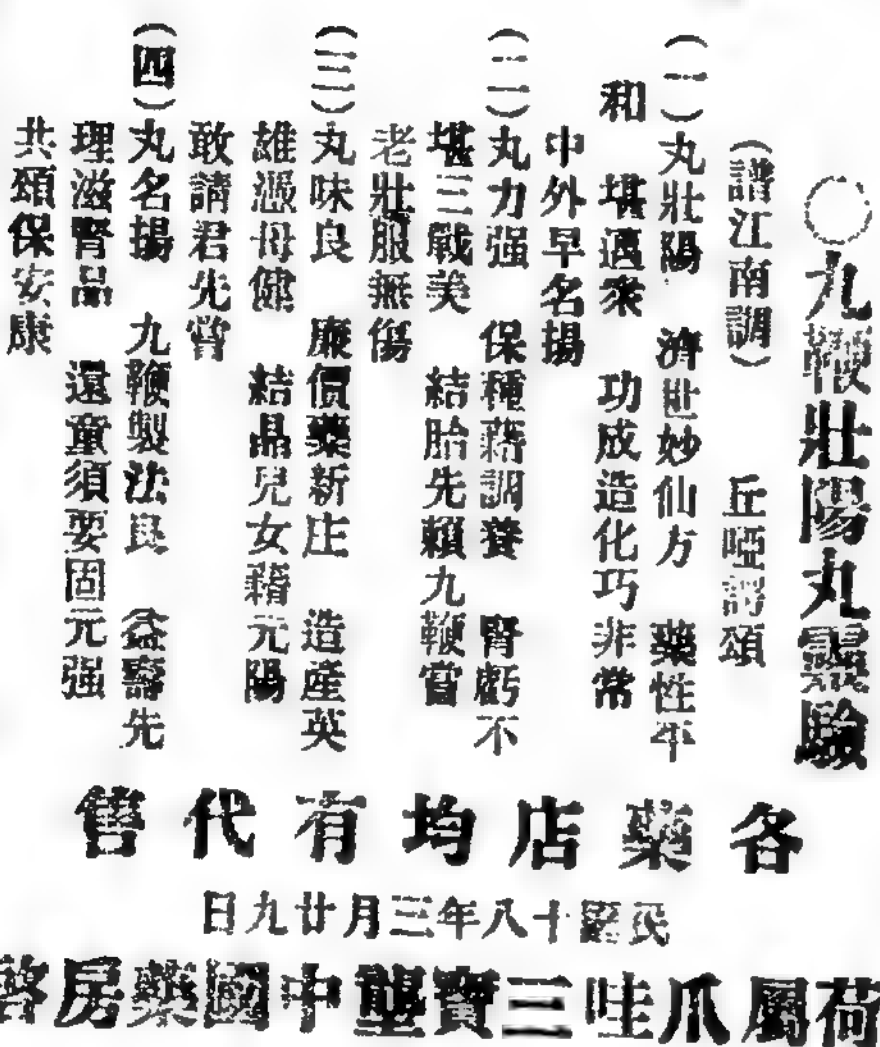 ○九鞭壯陽丸靈驗
(譜江南調)　丘啞謌頌
(一)丸壯陽　濟世妙仙方　藥性平
和　堪邁衆　功成造化巧非常
中外早名揚
(二)丸力强　保種藉調養　腎虧不
堪三戰美　結胎先賴九鞭嘗
老壯服無傷
(三)丸味良　廉價藥新庄　造産英
雄憑母健　結晶兒女藉元陽
敢請君先嘗
(四)丸名揚　九鞭製法良　益壽先
理滋腎品　還童須要固元强
共頌保安康
各藥店均有代售
民國十八年三月廿九日
荷屬爪哇三寶壟中國藥房啓